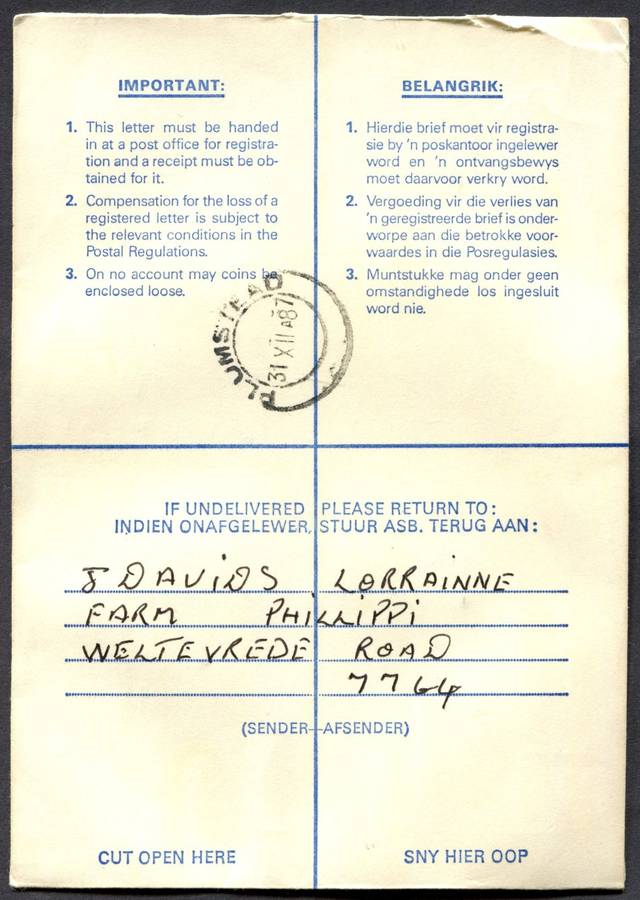 IMPORTANT:
1. This letter must be handed
in at a post office for registra-
tion and a receipt must be ob-
tained for it.
2. Compensation for the loss of a
registered letter is subject to
the relevant conditions in the
Postal Regulations.
3. On no account may coins be
enclosed loose.
BELANGRIK:
1. Hierdie brief moet vir registra-
sie by 'n poskantoor ingelewer
word en 'n ontvangsbewys
moet daarvoor verkry word.
2. Vergoeding vir die verlies van
'n geregistreerde brief is onder-
worpe aan die betrokke voor-
waardes in die Posregulasies.
3. Muntstukke mag onder geen
omstandighede los ingesluit
word nie.
PLUMSTEAD
31 XII A87
IF UNDELIVERED PLEASE RETURN TO:
INDIEN ONAFGELEWER, STUUR ASB. TERUG AAN:
J DAVIDS LORRAINNE
FARM PHILLIPPI
WELTEVREDE ROAD
7764
(SENDER—AFSENDER)
CUT OPEN HERE SNY HIER OOP